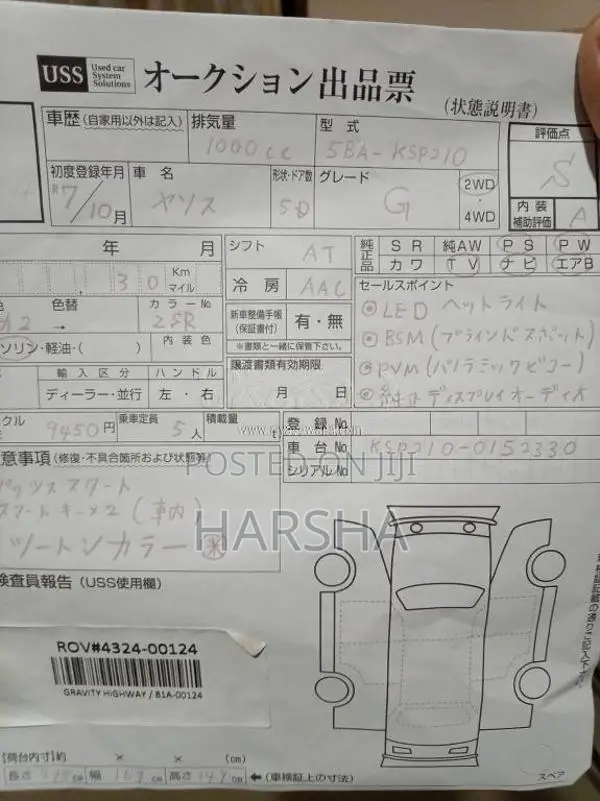 USS Used car System Solutions オークション出品票 (状態説明書)
車歴 (自家用以外は記入) 排気量 1000cc 型式 5BA-KSP210 評価点 S
初度登録年月 R7/10月 車名 ヤリス 形状・ドア数 5D グレード G 2WD・4WD 内装補助評価 A
年 月 シフト AT 純正品 SR 純AW PS PW
カワ TV ナビ エアB
30 Km マイル 冷房 AAC セールスポイント
色替 → カラーNo 2SR 新車整備手帳(保証書付) 有・無 ※書類と一緒に保管下さい。
◎LED ヘットライト
ソリン・軽油・( ) 内装色 譲渡書類有効期限 月 日
◎BSM(ブラインドスポット)
輸入区分 ハンドル
◎PVM(パノラミックビュー)
ディーラー・並行 左・右
◎純正ディスプレイオーディオ
クル 9450円 乗車定員 5人 積載量 t 登録No
車台No KSP210-0152330
シリアルNo
意事項 (修復・不具合箇所および状態等)
POSTED ON JIJI
プッシュスタート
スマートキー×2(車内)
HARSHA
ツートンカラー
検査員報告 (USS使用欄)
ROV#4324-00124
GRAVITY HIGHWAY / B1A-00124
[荷台内寸]約 × × (cm)
長さ cm 幅 169 cm 高さ cm ←(車検証上の寸法)
スペア